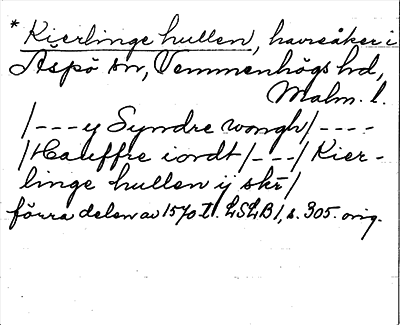 * Kierlinge hullen, havreåker i
Äspö sn, Vemmenhögs hd,
Malm. l.
/---y Syndre wongh/----
/Hauffre iordt/---/Kier-
linge hullen ij skr/
förra delen av 1570 t. LSLB1, s. 305. orig.